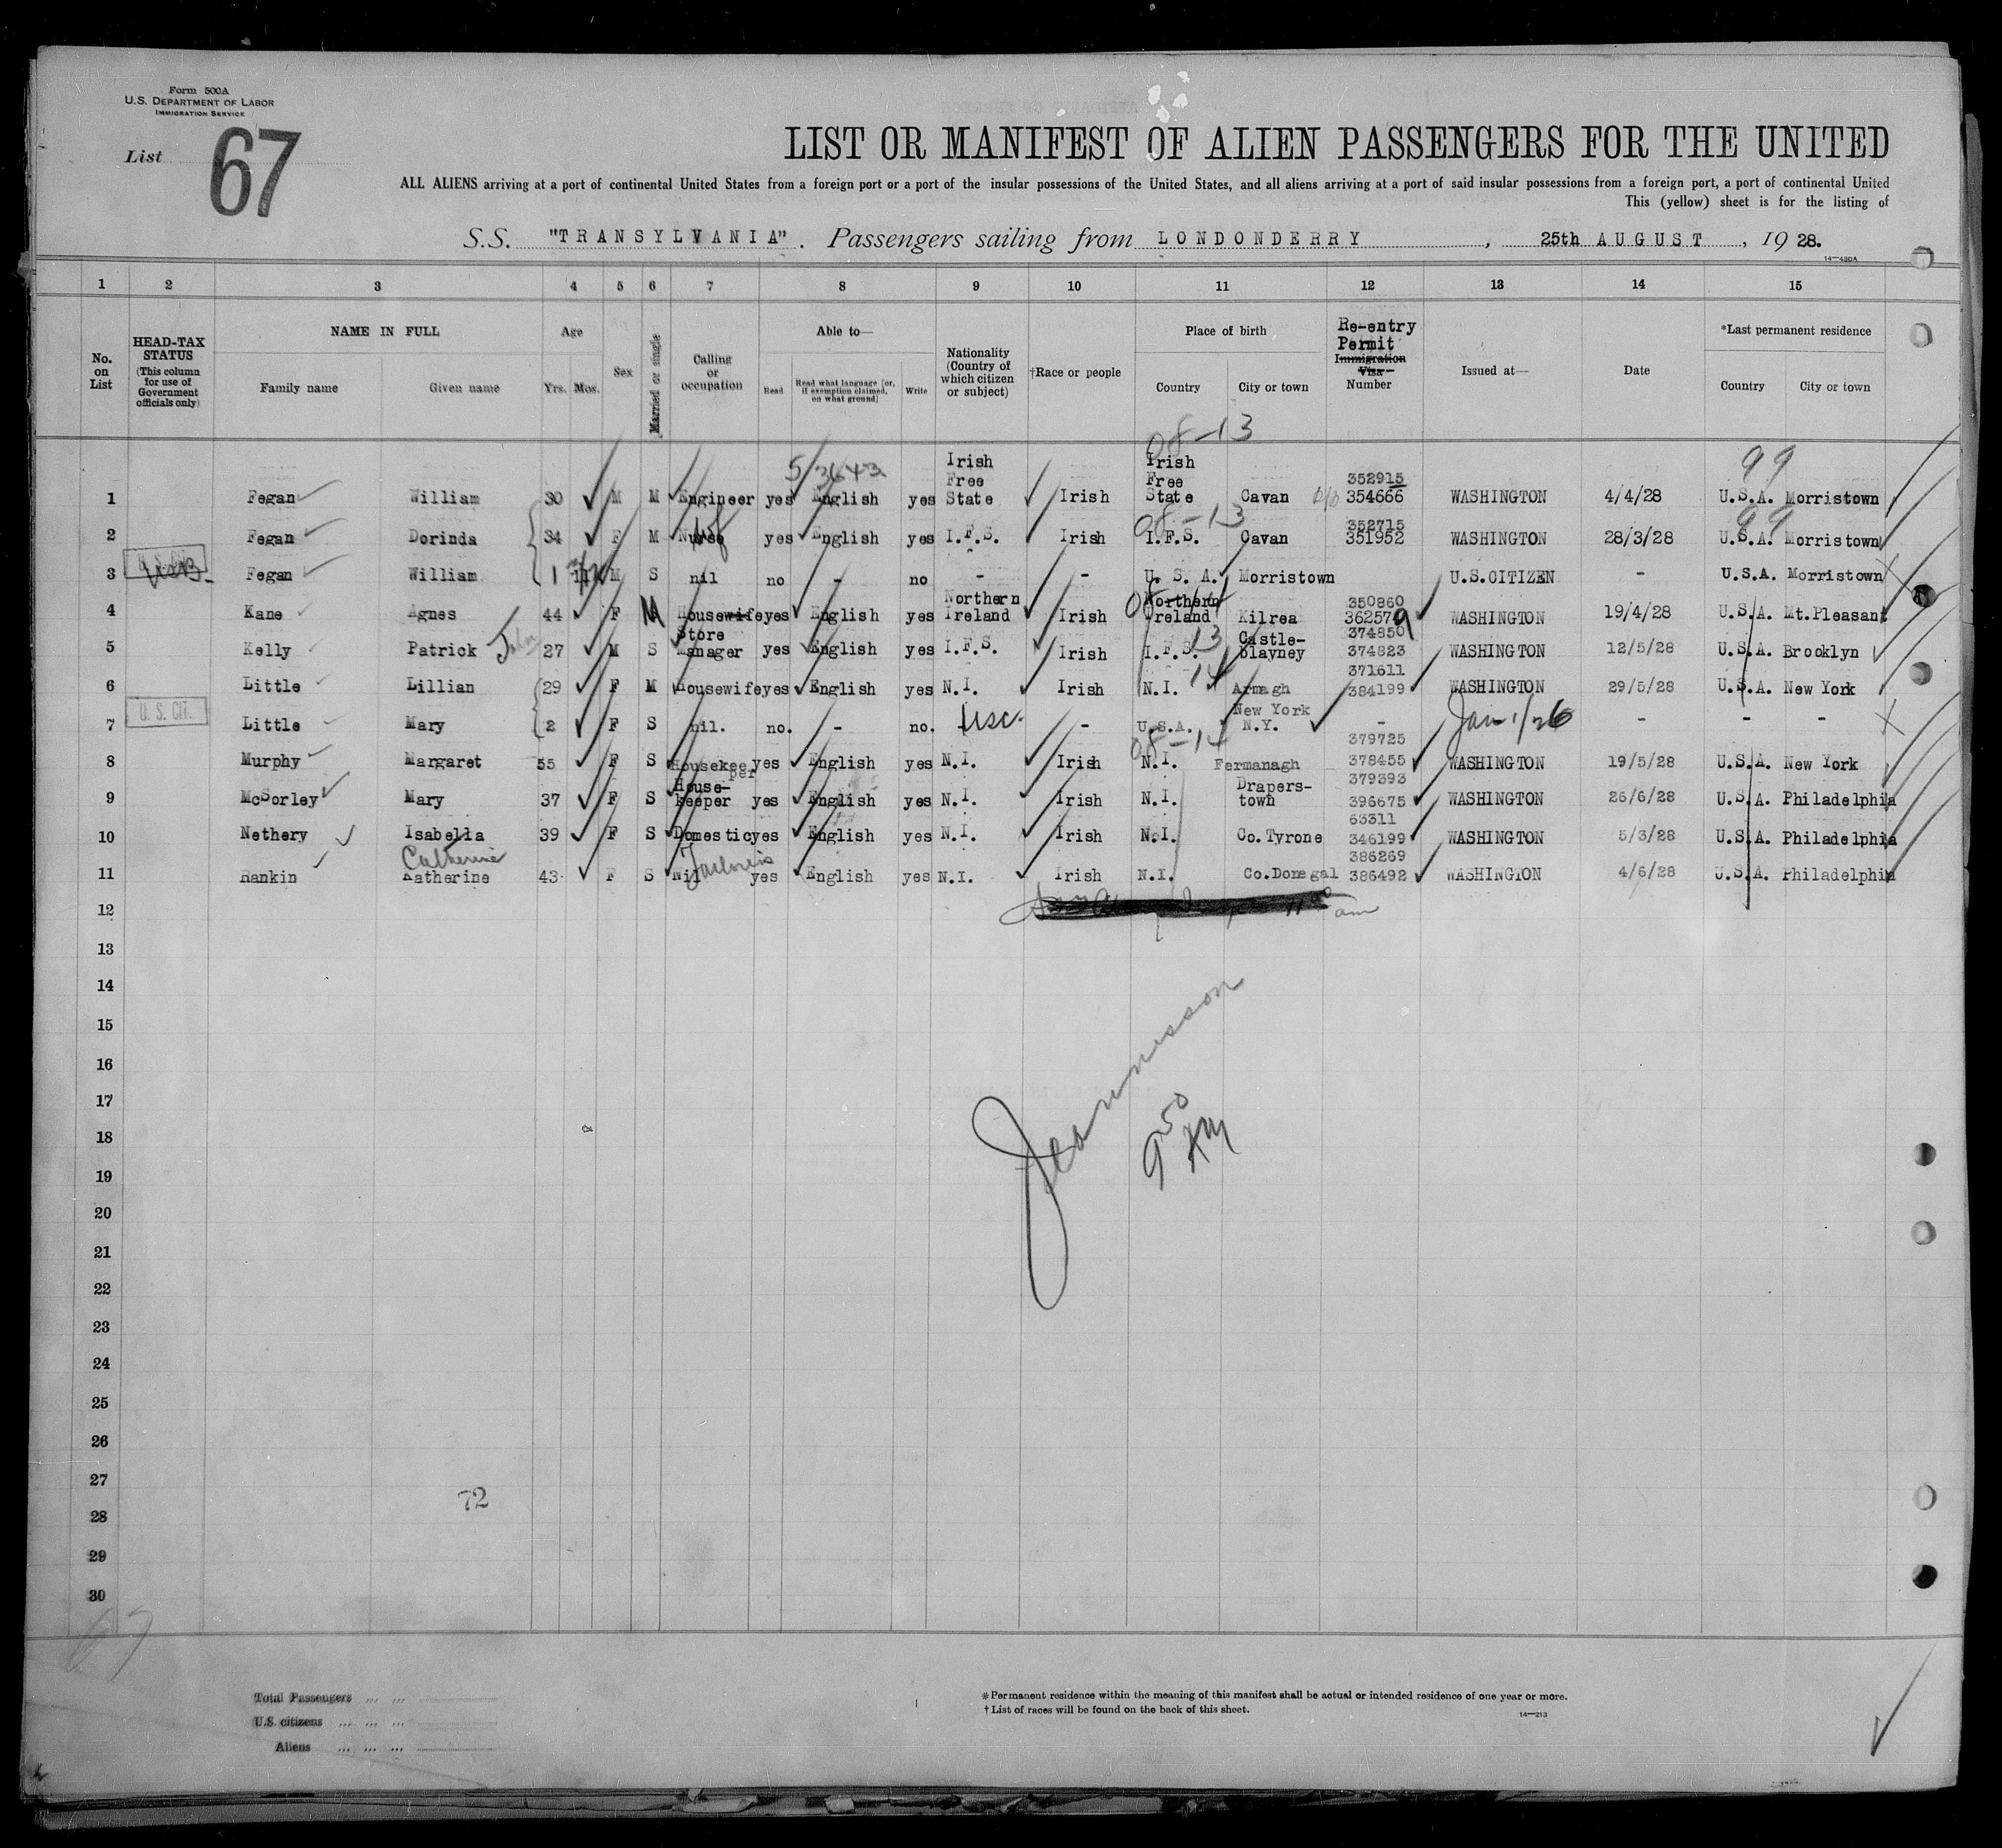 Form 500A
U.S. DEPARTMENT OF LABOR
IMMIGRATION SERVICE
List 67
LIST OR MANIFEST OF ALIEN PASSENGERS FOR THE UNITED
ALL ALIENS arriving at a port of continental United States from a foreign port or a port of the insular possessions of the United States, and all aliens arriving at a port of said insular possessions from a foreign port, a port of continental United
This (yellow) sheet is for the listing of
S.S. "TRANSYLVANIA". Passengers sailing from LONDONDERRY, 25th AUGUST, 1928.
14—430A
1 2 3 4 5 6 7 8 9 10 11 12 13 14 15
No. on List
HEAD-TAX STATUS (This column for use of Government officials only)
NAME IN FULL
Family name Given name
Age
Yrs. Mos.
Sex
Married or single
Calling or occupation
Able to—
Read Read what language [or, if exemption claimed, on what ground] Write
Nationality (Country of which citizen or subject)
†Race or people
Place of birth
Country City or town
Re-entry Permit Immigration Visa Number
Issued at—
Date
*Last permanent residence
Country City or town
08-13
5/3643
99
1 Fegan William 30 M M Engineer yes English yes Irish Free State Irish Irish Free State Cavan 352915 354666 WASHINGTON 4/4/28 U.S.A. Morristown
08-13
99
2 Fegan Dorinda 34 F M Nurse yes English yes I.F.S. Irish I.F.S. Cavan 352715 351952 WASHINGTON 28/3/28 U.S.A. Morristown
U. S. CIT.
3 Fegan William 1 M S nil no - no - - U. S. A. Morristown U.S.CITIZEN - U.S.A. Morristown
4 Kane Agnes 44 F M Housewife yes English yes Northern Ireland Irish Northern Ireland Kilrea 350860 362579 WASHINGTON 19/4/28 U.S.A. Mt.Pleasant
5 Kelly Patrick John 27 M S Store Manager yes English yes I.F.S. Irish I.F.S. 13 Castle-blayney 374850 374823 WASHINGTON 12/5/28 U.S.A. Brooklyn
6 Little Lillian 29 F M Housewife yes English yes N.I. Irish N.I. 14 Armagh 371611 384199 WASHINGTON 29/5/28 U.S.A. New York
U. S. CIT.
7 Little Mary 2 F S nil. no. - no. USC. - U.S.A. New York N.Y. - Jan 1/26 - - -
08-14
8 Murphy Margaret 55 F S Housekeeper yes English yes N.I. Irish N.I. Fermanagh 379725 378455 WASHINGTON 19/5/28 U.S.A. New York
9 McSorley Mary 37 F S House-keeper yes English yes N.I. Irish N.I. Drapers-town 379393 396675 WASHINGTON 26/6/28 U.S.A. Philadelphia
10 Nethery Isabella 39 F S Domestic yes English yes N.I. Irish N.I. Co.Tyrone 63311 346199 WASHINGTON 5/3/28 U.S.A. Philadelphia
Catherine
11 Rankin Katherine 43 F S Nil yes English yes N.I. Irish N.I. Co.Donegal 386269 386492 WASHINGTON 4/6/28 U.S.A. Philadelphia
12
13
14
15
16
17
18
19
20
21
22
23
24
25
26
27
28
29
30
Jeannisson
9 50 AM
72
67
Total Passengers ... ...
U.S. citizens ... ... ...
Aliens ... ... ...
*Permanent residence within the meaning of this manifest shall be actual or intended residence of one year or more.
†List of races will be found on the back of this sheet.
14—213